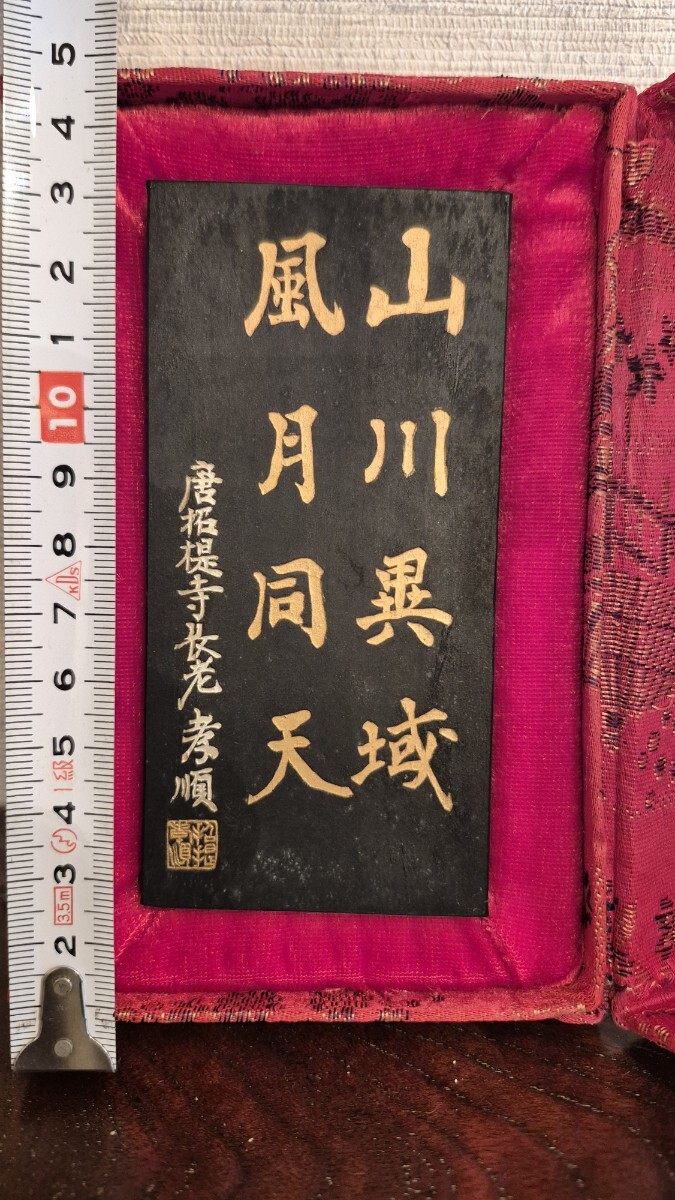 山川異域
風月同天
唐招提寺長老孝順
5
4
3
2
1
10
9
8
7
KDS
6
5
1級
4
3
3.5m
2